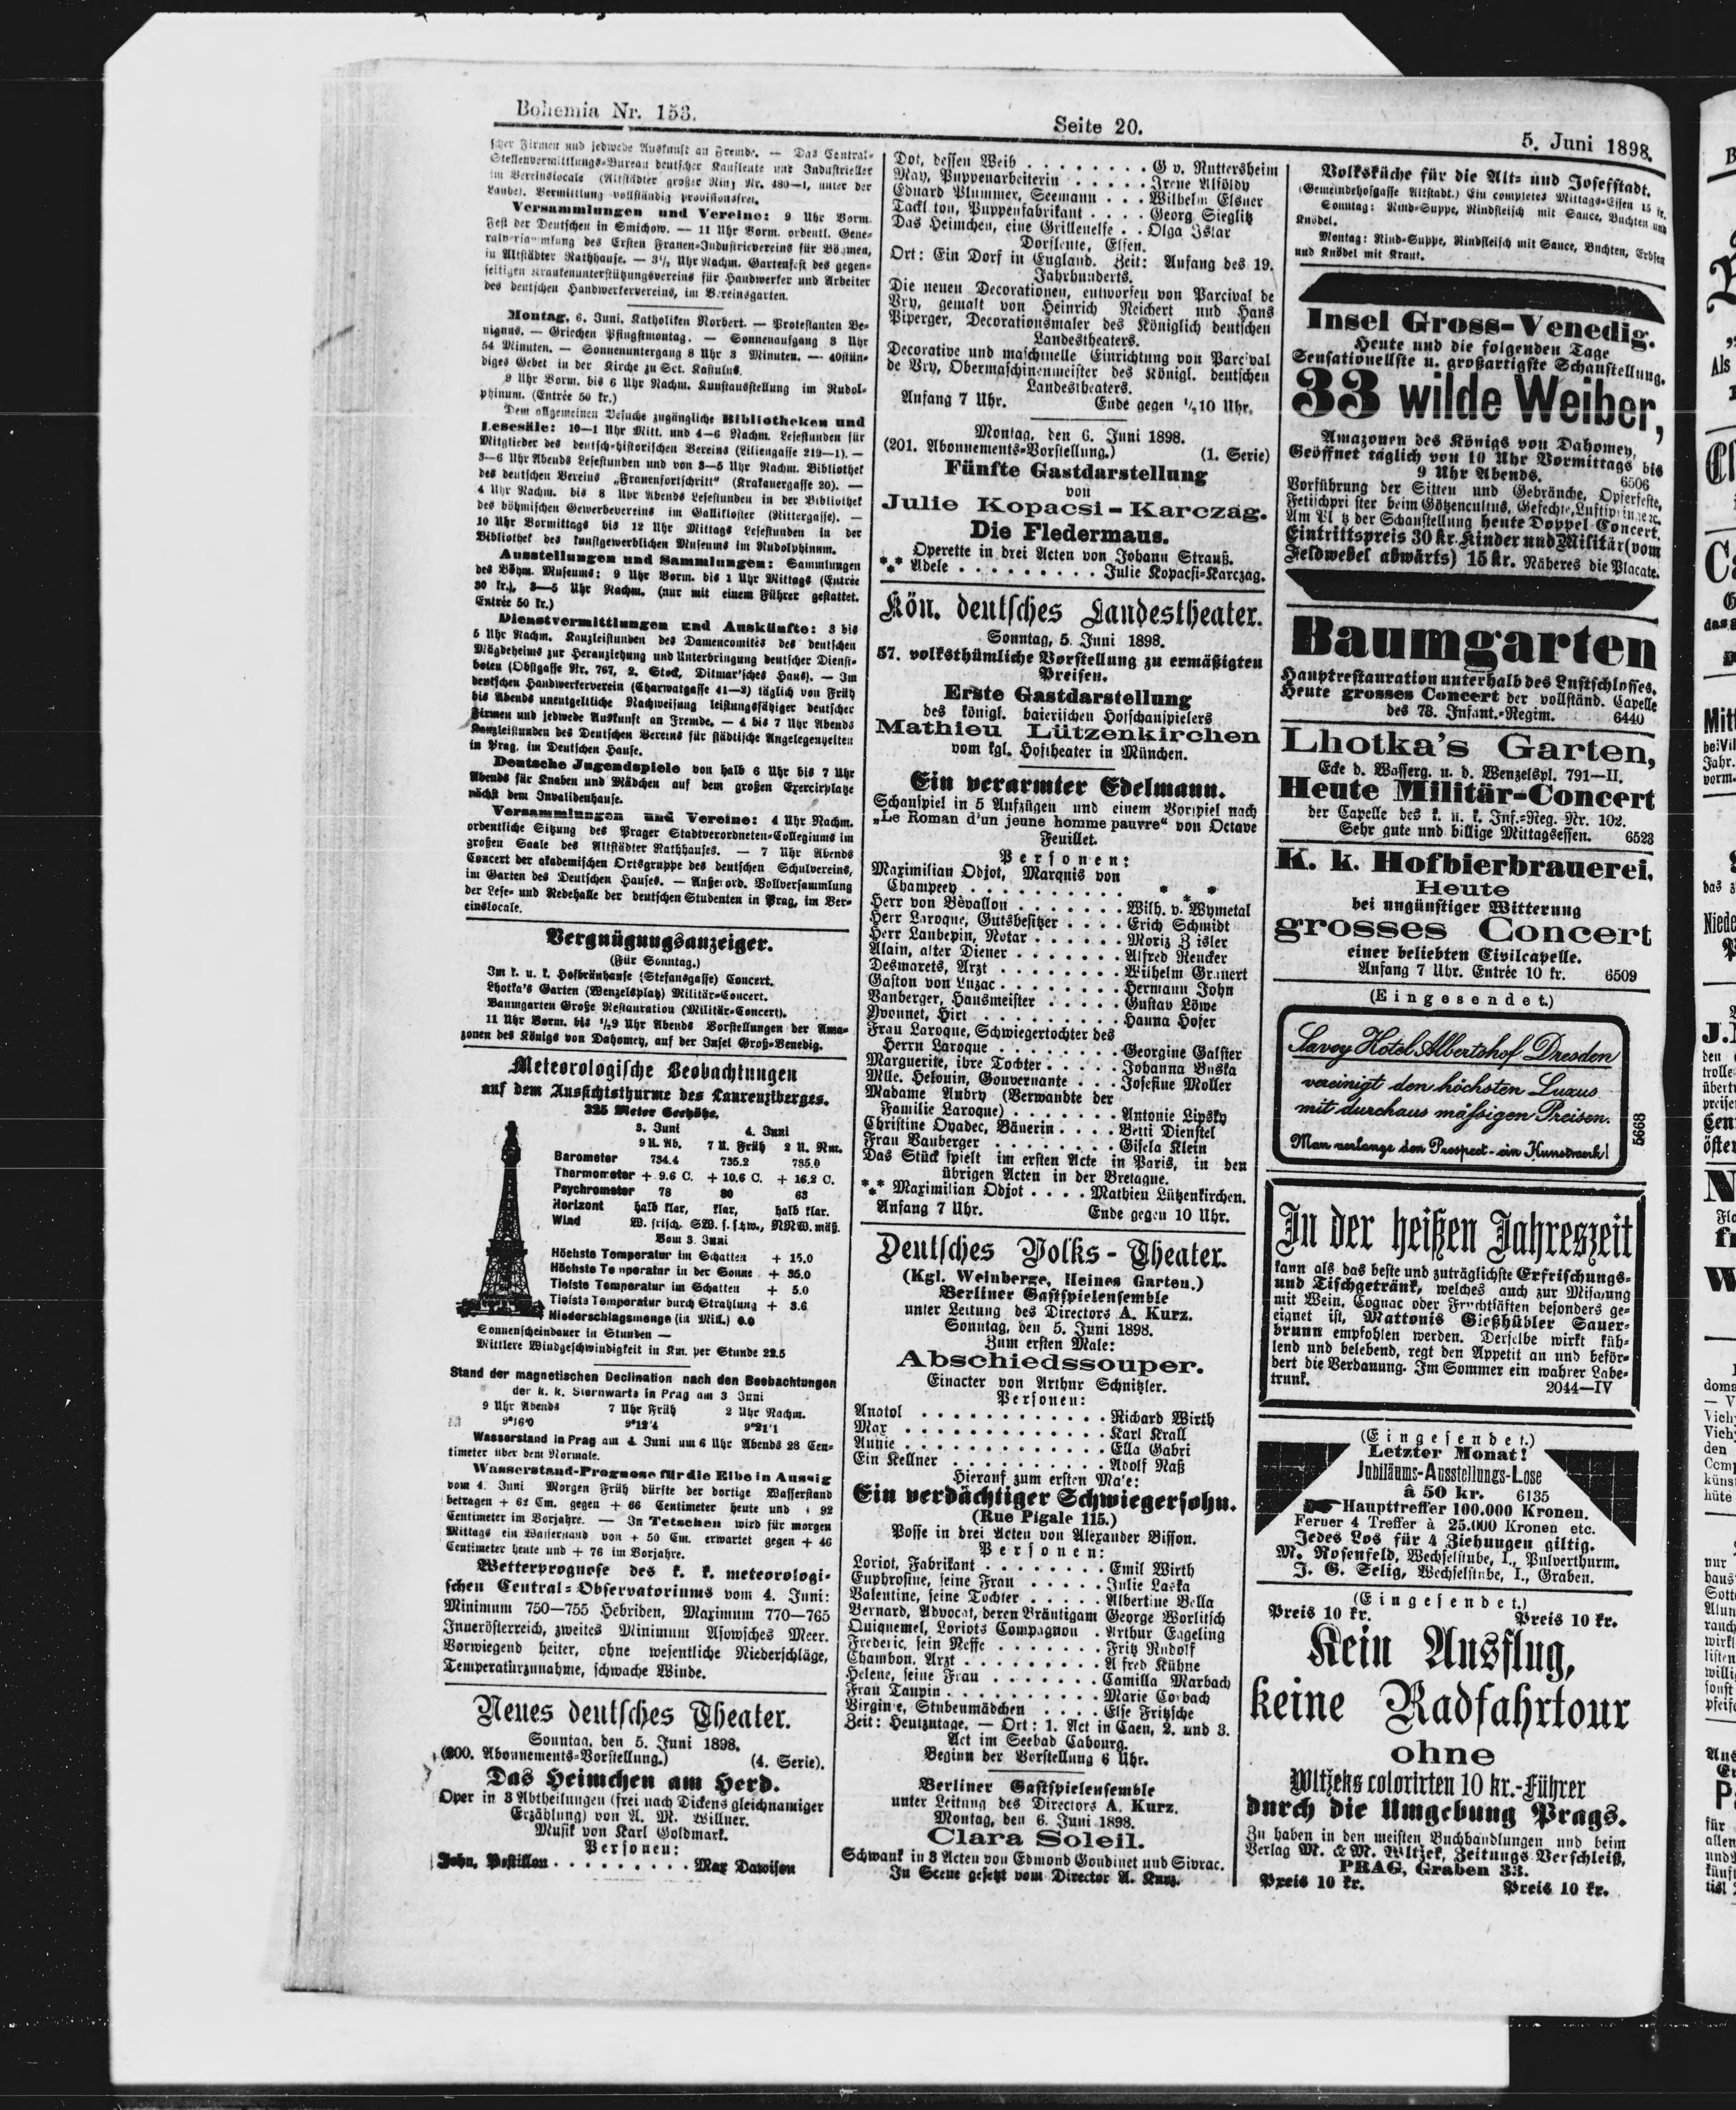 Bohemia Nr. 153.
Seite 20.
5. Juni 1898.
scher Firmen und jedwede Auskunft an Fremde. — Das Central-
Stellenvermittlungs-Bureau deutscher Kaufleute und Industrieller
im Vereinslocale (Altstädter großer Ring Nr. 480—1, unter der
Laube). Vermittlung vollständig provisionsfrei.
Versammlungen und Vereine: 9 Uhr Vorm.
Fest der Deutschen in Smichow. — 11 Uhr Vorm. ordentl. Gene-
ralversammlung des Ersten Frauen-Industrievereins für Böhmen,
in Altstädter Rathhause. — 3½ Uhr Nachm. Gartenfest des gegen-
seitigen Krankenunterstützungsvereins für Handwerker und Arbeiter
des deutschen Handwerkervereins, im Vereinsgarten.
Montag, 6. Juni. Katholiken Norbert. — Protestanten Be-
nignus. — Griechen Pfingstmontag. — Sonnenaufgang 3 Uhr
54 Minuten. — Sonnenuntergang 8 Uhr 3 Minuten. — 40stün-
diges Gebet in der Kirche zu Sct. Kastulus.
9 Uhr Vorm. bis 6 Uhr Nachm. Kunstausstellung im Rudol-
phinum. (Entrée 50 kr.)
Dem allgemeinen Besuche zugängliche Bibliotheken und
Lesesäle: 10—1 Uhr Mitt. und 4—6 Nachm. Lesestunden für
Mitglieder des deutsch-historischen Vereins (Liliengasse 219—1). —
3—6 Uhr Abends Lesestunden und von 3—5 Uhr Nachm. Bibliothek
des deutschen Vereins „Frauenfortschritt“ (Krakauergasse 20). —
4 Uhr Nachm. bis 8 Uhr Abends Lesestunden in der Bibliothek
des böhmischen Gewerbevereins im Gallikloster (Rittergasse). —
10 Uhr Vormittags bis 12 Uhr Mittags Lesestunden in der
Bibliothek des kunstgewerblichen Museums im Rudolphinum.
Ausstellungen und Sammlungen: Sammlungen
des Böhm. Museums: 9 Uhr Vorm. bis 1 Uhr Mittags (Entrée
30 kr.), 3—5 Uhr Nachm. (nur mit einem Führer gestattet.
Entrée 50 kr.)
Dienstvermittlungen und Auskünfte: 3 bis
5 Uhr Nachm. Kanzleistunden des Damencomités des deutschen
Mägdeheims zur Heranziehung und Unterbringung deutscher Dienst-
boten (Obstgasse Nr. 767, 2. Stock, Ditmar'sches Haus). — Im
deutschen Handwerkerverein (Charwatgasse 41—2) täglich von Früh
bis Abends unentgeltliche Nachweisung leistungsfähiger deutscher
Firmen und jedwede Auskunft an Fremde. — 4 bis 7 Uhr Abends
Kanzleistunden des Deutschen Vereins für städtische Angelegenheiten
in Prag, im Deutschen Hause.
Deutsche Jugendspiele von halb 6 Uhr bis 7 Uhr
Abends für Knaben und Mädchen auf dem großen Exercirplatze
nächst dem Invalidenhause.
Versammlungen und Vereine: 4 Uhr Nachm.
ordentliche Sitzung des Prager Stadtverordneten-Collegiums im
großen Saale des Altstädter Rathhauses. — 7 Uhr Abends
Concert der akademischen Ortsgruppe des deutschen Schulvereins,
im Garten des Deutschen Hauses. — Außerord. Vollversammlung
der Lese- und Redehalle der deutschen Studenten in Prag, im Ver-
einslocale.
Vergnügungsanzeiger.
(Für Sonntag.)
Im k. u. k. Hofbräuhause (Stefansgasse) Concert.
Lhotka's Garten (Wenzelsplatz) Militär-Concert.
Baumgarten Große Restauration (Militär-Concert).
11 Uhr Vorm. bis ½9 Uhr Abends Vorstellungen der Ama-
zonen des Königs von Dahomey, auf der Insel Groß-Venedig.
Meteorologische Beobachtungen
auf dem Aussichtsthurme des Laurenziberges.
325 Meter Seehöhe.
3. Juni 4. Juni
9 U. Ab. 7 U. Früh 2 U. Nm.
Barometer 734.4 735.2 735.0
Thermometer + 9.6 C. + 10.6 C. + 16.2 C.
Psychrometer 78 80 63
Horizont halb klar, klar, halb klar.
Wind W. frisch. SW. s. schw., NNW. mäß.
Vom 3. Juni
Höchste Temperatur im Schatten + 15.0
Höchste Temperatur in der Sonne + 35.0
Tiefste Temperatur im Schatten + 5.0
Tiefste Temperatur durch Strahlung + 3.6
Niederschlagsmenge (in Mill.) 0.0
Sonnenscheindauer in Stunden —
Mittlere Windgeschwindigkeit in Km. per Stunde 22.5
Stand der magnetischen Declination nach den Beobachtungen
der k. k. Sternwarte in Prag am 3 Juni
9 Uhr Abends 7 Uhr Früh 2 Uhr Nachm.
9°16'0 9°12'4 9°21'1
Wasserstand in Prag am 4. Juni um 6 Uhr Abends 28 Cen-
timeter über dem Normale.
Wasserstand-Prognose für die Elbe in Aussig
vom 4. Juni Morgen Früh dürfte der dortige Wasserstand
betragen + 62 Cm. gegen + 66 Centimeter heute und + 92
Centimeter im Vorjahre. — In Tetschen wird für morgen
Mittags ein Wasserstand von + 50 Cm. erwartet gegen + 46
Centimeter heute und + 76 im Vorjahre.
Wetterprognose des k. k. meteorologi-
schen Central-Observatoriums vom 4. Juni:
Minimum 750—755 Hebriden, Maximum 770—765
Innerösterreich, zweites Minimum Asowsches Meer.
Vorwiegend heiter, ohne wesentliche Niederschläge,
Temperaturzunahme, schwache Winde.
Neues deutsches Theater.
Sonntag, den 5. Juni 1898.
(200. Abonnements-Vorstellung.) (4. Serie).
Das Heimchen am Herd.
Oper in 3 Abtheilungen (frei nach Dickens gleichnamiger
Erzählung) von A. M. Willner.
Musik von Karl Goldmark.
Personen:
John, Postillon . . . . . . . . . Max Dawison
Dot, dessen Weib . . . . . . . G v. Ruttersheim
May, Puppenarbeiterin . . . . . Irene Alföldy
Eduard Plummer, Seemann . . . Wilhelm Elsner
Tackleton, Puppenfabrikant . . . . Georg Sieglitz
Das Heimchen, eine Grillenelfe . . Olga Islar
Dorfleute, Elfen.
Ort: Ein Dorf in England. Zeit: Anfang des 19.
Jahrhunderts.
Die neuen Decorationen, entworfen von Parcival de
Vry, gemalt von Heinrich Reichert und Hans
Piperger, Decorationsmaler des Königlich deutschen
Landestheaters.
Decorative und maschinelle Einrichtung von Parcival
de Vry, Obermaschinenmeister des Königl. deutschen
Landestheaters.
Anfang 7 Uhr. Ende gegen ½10 Uhr.
Montag, den 6. Juni 1898.
(201. Abonnements-Vorstellung.) (1. Serie)
Fünfte Gastdarstellung
von
Julie Kopacsi-Karczag.
Die Fledermaus.
Operette in drei Acten von Johann Strauß.
*** Adele . . . . . . . . . Julie Kopacsi-Karczag.
Kön. deutsches Landestheater.
Sonntag, 5. Juni 1898.
57. volksthümliche Vorstellung zu ermäßigten
Preisen.
Erste Gastdarstellung
des königl. baierischen Hofschauspielers
Mathieu Lützenkirchen
vom kgl. Hoftheater in München.
Ein verarmter Edelmann.
Schauspiel in 5 Aufzügen und einem Vorspiel nach
„Le Roman d'un jeune homme pauvre“ von Octave
Feuillet.
Personen:
Maximilian Odjot, Marquis von
Champcey . . . . . . . . . . * * *
Herr von Bévallon . . . . . . . Wilh. v. Wymetal
Herr Laroque, Gutsbesitzer . . . . Erich Schmidt
Herr Laubepin, Notar . . . . . . Moriz Zisler
Alain, alter Diener . . . . . . . Alfred Reucker
Desmarets, Arzt . . . . . . . . Wilhelm Grunert
Gaston von Luzac . . . . . . . . Hermann John
Vauberger, Hausmeister . . . . . Gustav Löwe
Yvonnet, Hirt . . . . . . . . . Hanna Hofer
Frau Laroque, Schwiegertochter des
Herrn Laroque . . . . . . . . Georgine Galster
Marguerite, ihre Tochter . . . . . Johanna Buska
Mlle. Helouin, Gouvernante . . . Josefine Moller
Madame Aubry (Verwandte der
Familie Laroque) . . . . . . . Antonie Lipsky
Christine Oyadec, Bäuerin . . . . Betti Dienstel
Frau Vauberger . . . . . . . . Gisela Klein
Das Stück spielt im ersten Acte in Paris, in den
übrigen Acten in der Bretagne.
*** Maximilian Odjot . . . . Mathieu Lützenkirchen.
Anfang 7 Uhr. Ende gegen 10 Uhr.
Deutsches Volks-Theater.
(Kgl. Weinberge, Heines Garten.)
Berliner Gastspielensemble
unter Leitung des Directors A. Kurz.
Sonntag, den 5. Juni 1898.
Zum ersten Male:
Abschiedssouper.
Einacter von Arthur Schnitzler.
Personen:
Anatol . . . . . . . . . . . . Richard Wirth
Max . . . . . . . . . . . . . Karl Krall
Annie . . . . . . . . . . . . . Ella Gabri
Ein Kellner . . . . . . . . . . Adolf Naß
Hierauf zum ersten Male:
Ein verdächtiger Schwiegersohn.
(Rue Pigale 115.)
Posse in drei Acten von Alexander Bisson.
Personen:
Loriot, Fabrikant . . . . . . . . Emil Wirth
Euphrosine, seine Frau . . . . . Julie Laska
Valentine, seine Tochter . . . . . Albertine Bella
Bernard, Advocat, deren Bräutigam George Worlitsch
Quiquemel, Loriots Compagnon . Arthur Engeling
Frederic, sein Neffe . . . . . . . Fritz Rudolf
Chambon, Arzt . . . . . . . . . Alfred Kühne
Helene, seine Frau . . . . . . . Camilla Marbach
Frau Taupin . . . . . . . . . . Marie Corbach
Virginie, Stubenmädchen . . . . Else Fritzsche
Zeit: Heutzutage. — Ort: 1. Act in Caen, 2. und 3.
Act im Seebad Cabourg.
Beginn der Vorstellung 6 Uhr.
Berliner Gastspielensemble
unter Leitung des Directors A. Kurz.
Montag, den 6. Juni 1898.
Clara Soleil.
Schwank in 3 Acten von Edmond Gondinet und Sivrac.
In Scene gesetzt vom Director A. Kurz.
Volksküche für die Alt- und Josefstadt.
(Gemeindehofgasse Altstadt.) Ein completes Mittags-Essen 15 kr.
Sonntag: Rind-Suppe, Rindfleisch mit Sauce, Buchten und
Knödel.
Montag: Rind-Suppe, Rindfleisch mit Sauce, Buchten, Erbsen
und Knödel mit Kraut.
Insel Gross-Venedig.
Heute und die folgenden Tage
Sensationellste u. großartigste Schaustellung.
33 wilde Weiber,
Amazonen des Königs von Dahomey,
Geöffnet täglich von 10 Uhr Vormittags bis
9 Uhr Abends. 6506
Vorführung der Sitten und Gebräuche, Opferfeste,
Fetischpriester beim Götzencultus, Gefechte, etc.
Am Platz der Schaustellung heute Doppel-Concert.
Eintrittspreis 30 kr. Kinder und Militär (vom
Feldwebel abwärts) 15 kr. Näheres die Placate.
Baumgarten
Hauptrestauration unterhalb des Lustschlosses.
Heute grosses Concert der vollständ. Capelle
des 73. Infant.-Regim. 6440
Lhotka's Garten,
Ecke d. Wasserg. u. d. Wenzelspl. 791—II.
Heute Militär-Concert
der Capelle des k. u. k. Inf.-Reg. Nr. 102.
Sehr gute und billige Mittagsessen. 6523
K. k. Hofbierbrauerei.
Heute
bei ungünstiger Witterung
grosses Concert
einer beliebten Civilcapelle.
Anfang 7 Uhr. Entrée 10 kr. 6509
(Eingesendet.)
Savoy Hotel Albertshof Dresden
vereinigt den höchsten Luxus
mit durchaus mäßigen Preisen.
Man verlange den Prospect - ein Kunstwerk!
5668
In der heißen Jahreszeit
kann als das beste und zuträglichste Erfrischungs-
und Tischgetränk, welches auch zur Mischung
mit Wein, Cognac oder Fruchtsäften besonders ge-
eignet ist, Mattonis Gießhübler Sauer-
brunn empfohlen werden. Derselbe wirkt küh-
lend und belebend, regt den Appetit an und beför-
dert die Verdauung. Im Sommer ein wahrer Labe-
trunk. 2044—IV
(Eingesendet.)
Letzter Monat!
Jubiläums-Ausstellungs-Lose
à 50 kr. 6135
Haupttreffer 100.000 Kronen.
Ferner 4 Treffer à 25.000 Kronen etc.
Jedes Los für 4 Ziehungen giltig.
M. Rosenfeld, Wechselstube, I., Pulverthurm.
J. G. Selig, Wechselstube, I., Graben.
(Eingesendet.)
Preis 10 kr. Preis 10 kr.
Kein Ausflug,
keine Radfahrtour
ohne
Wltzeks colorirten 10 kr.-Führer
durch die Umgebung Prags.
Zu haben in den meisten Buchhandlungen und beim
Verlag M. & M. Wltzek, Zeitungs-Verschleiß,
PRAG, Graben 33.
Preis 10 kr. Preis 10 kr.